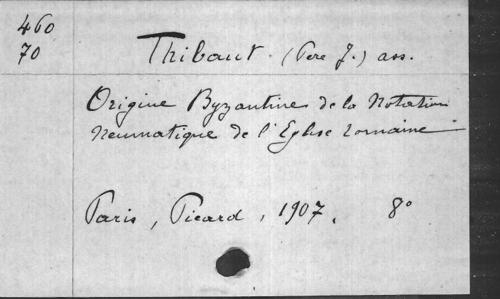 460
70
Thibaut (Père J.) ass.
Origine Byzantine de la Notation
Neumatique de l'Eglise romaine
Paris, Picard, 1907. 8°